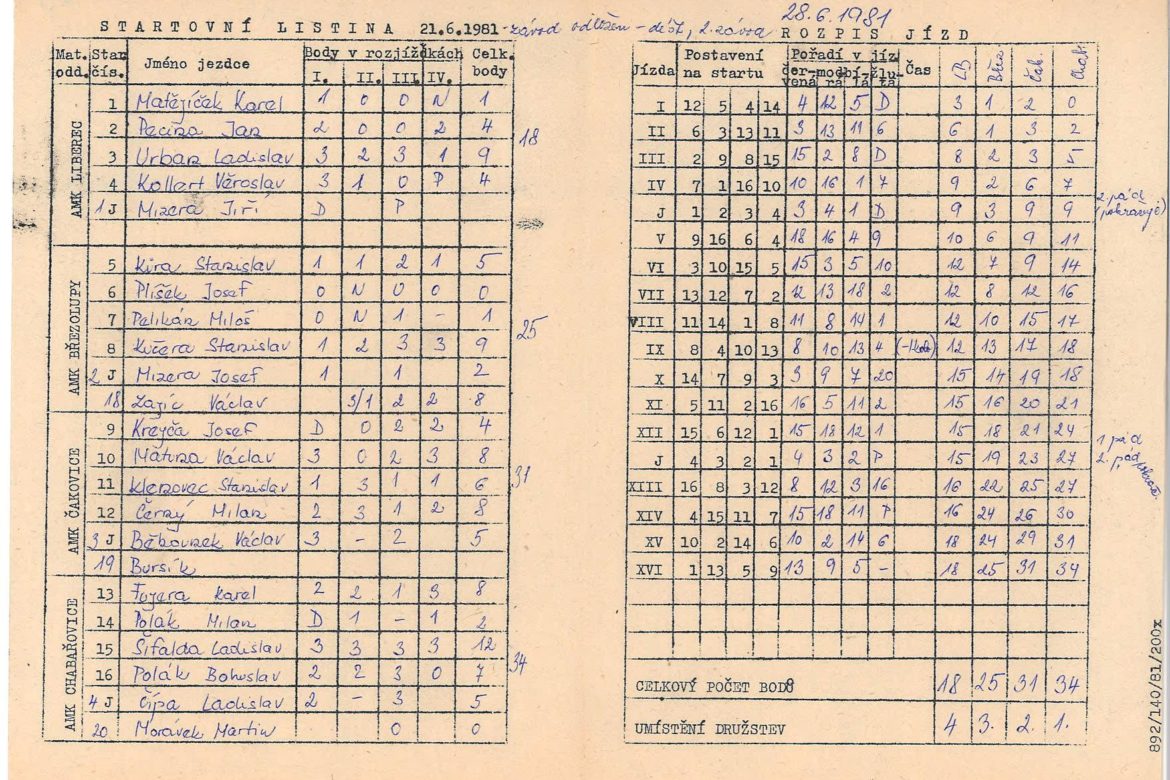 28.6.1981
STARTOVNÍ LISTINA 21.6.1981 - závod odložen - déšť, 2. závod ROZPIS JÍZD
Mat. odd. Star. čís. Jméno jezdce Body v rozjížďkách I. II. III. IV. Celk. body
AMK LIBEREC
1 Matějíček Karel 1 0 0 N 1
2 Pecina Jan 2 0 0 2 4
3 Urban Ladislav 3 2 3 1 9
4 Kollert Věroslav 3 1 0 P 4
1 J Mizera Jiří D P
18
AMK BŘEZOLUPY
5 Kůra Stanislav 1 1 2 1 5
6 Plíšek Josef 0 N 0 0 0
7 Pelikán Miloš 0 N 1 - 1
8 Kučera Stanislav 1 2 3 3 9
2 J Mizera Josef 1 1 2
18 Zajíc Václav 3/1 2 2 8
25
AMK ČAKOVICE
9 Krejča Josef D 0 2 2 4
10 Matuna Václav 3 0 2 3 8
11 Klenovec Stanislav 1 3 1 1 6
12 Černý Milan 2 3 1 2 8
3 J Běhounek Václav 3 - 2 5
19 Bursík
31
AMK CHABAŘOVICE
13 Fojera Karel 2 2 1 3 8
14 Polák Milan D 1 - 1 2
15 Šifalda Ladislav 3 3 3 3 12
16 Polák Bohuslav 2 2 3 0 7
4 J Čípa Ladislav 2 - 3 5
20 Morávek Martin 0 0
34
Jízda Postavení na startu Pořadí v jíz čer-vená mod-rá bí-lá žlu-tá Čas LB Břez Čak. Chab.
I 12 5 4 14 4 12 5 D 3 1 2 0
II 6 3 13 11 3 13 11 6 6 1 3 2
III 2 9 8 15 15 2 8 D 8 2 3 5
IV 7 1 16 10 10 16 1 7 9 2 6 7
J 1 2 3 4 3 4 1 D 9 3 9 9 2. pád (pokračuje)
V 9 16 6 4 18 16 4 9 10 6 9 11
VI 3 10 15 5 15 3 5 10 12 7 9 14
VII 13 12 7 2 12 13 18 2 12 8 12 16
VIII 11 14 1 8 11 8 14 1 12 10 15 17
IX 8 4 10 13 8 10 13 4 12 13 17 18
X 14 7 9 3 3 9 7 20 15 14 19 18
XI 5 11 2 16 16 5 11 2 15 16 20 21
XII 15 6 12 1 15 18 12 1 15 18 21 24
J 4 3 2 1 4 3 2 P 15 19 23 27 1 pád 2. pád
XIII 16 8 3 12 8 12 3 16 16 22 25 27
XIV 4 15 11 7 15 18 11 P 16 24 26 30
XV 10 2 14 6 10 2 14 6 18 24 29 31
XVI 1 13 5 9 13 9 5 - 18 25 31 34
CELKOVÝ POČET BODŮ 18 25 31 34
UMÍSTĚNÍ DRUŽSTEV 4 3. 2. 1.
892/140/81/200x